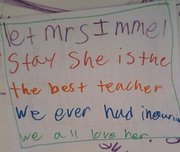 let mrs Immel
Stay She is the
the best teacher
we ever had in our
we all love her.